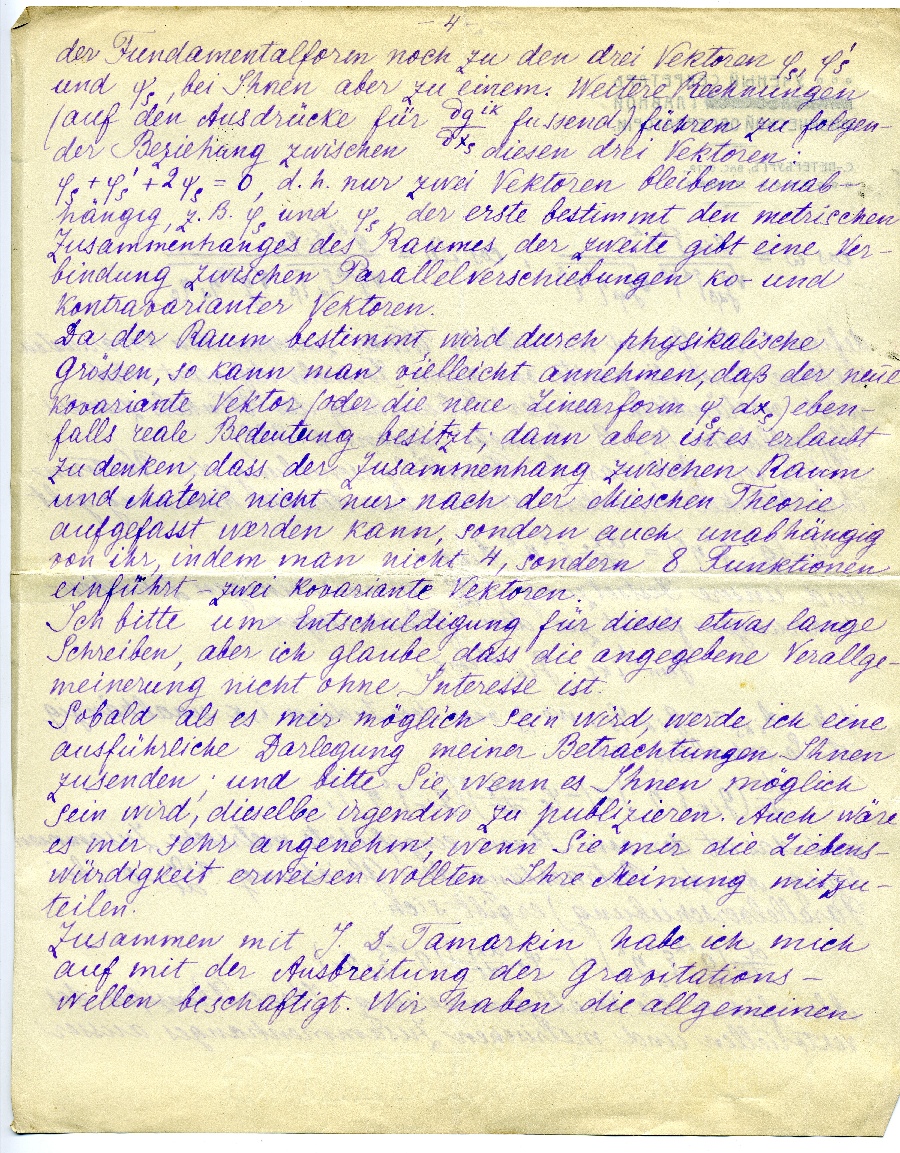 - 4 -
der Fundamentalform noch zu den drei Vektoren φ_s, φ'_s
und ψ_s, bei Ihnen aber zu einem. Weitere Rechnungen
(auf den Ausdrücke für ∂g^{ik}/∂x_s fussend) führen zu folgen-
der Beziehung zwischen diesen drei Vektoren:
φ_s + φ'_s + 2ψ_s = 0, d. h. nur zwei Vektoren bleiben unab-
hängig, z. B. φ_s und ψ_s, der erste bestimmt den metrischen
Zusammenhanges des Raumes, der zweite gibt eine Ver-
bindung zwischen Parallelverschiebungen ko- und
kontravarianter Vektoren.
Da der Raum bestimmt wird durch physikalische
Grössen, so kann man vielleicht annehmen, daß der neue
kovariante Vektor (oder die neue Linearform ψ_s dx_s) eben-
falls reale Bedeutung besitzt; dann aber ist es erlaubt
zu denken, dass der Zusammenhang zwischen Raum
und Materie nicht nur nach der Mieschen Theorie
aufgefasst werden kann, sondern auch unabhängig
von ihr, indem man nicht 4, sondern 8 Funktionen
einführt - zwei kovariante Vektoren.
Ich bitte um Entschuldigung für dieses etwas lange
Schreiben, aber ich glaube, dass die angegebene Verallge-
meinerung nicht ohne Interesse ist.
Sobald als es mir möglich sein wird, werde ich eine
ausführliche Darlegung meiner Betrachtungen Ihnen
zusenden und bitte Sie, wenn es Ihnen möglich
sein wird, dieselbe irgendwo zu publizieren. Auch wäre
es mir sehr angenehm, wenn Sie mir die Liebens-
würdigkeit erweisen wollten Ihre Meinung mitzu-
teilen.
Zusammen mit J. D. Tamarkin habe ich mich
auf mit der Ausbreitung der Gravitations-
wellen beschäftigt. Wir haben die allgemeinen